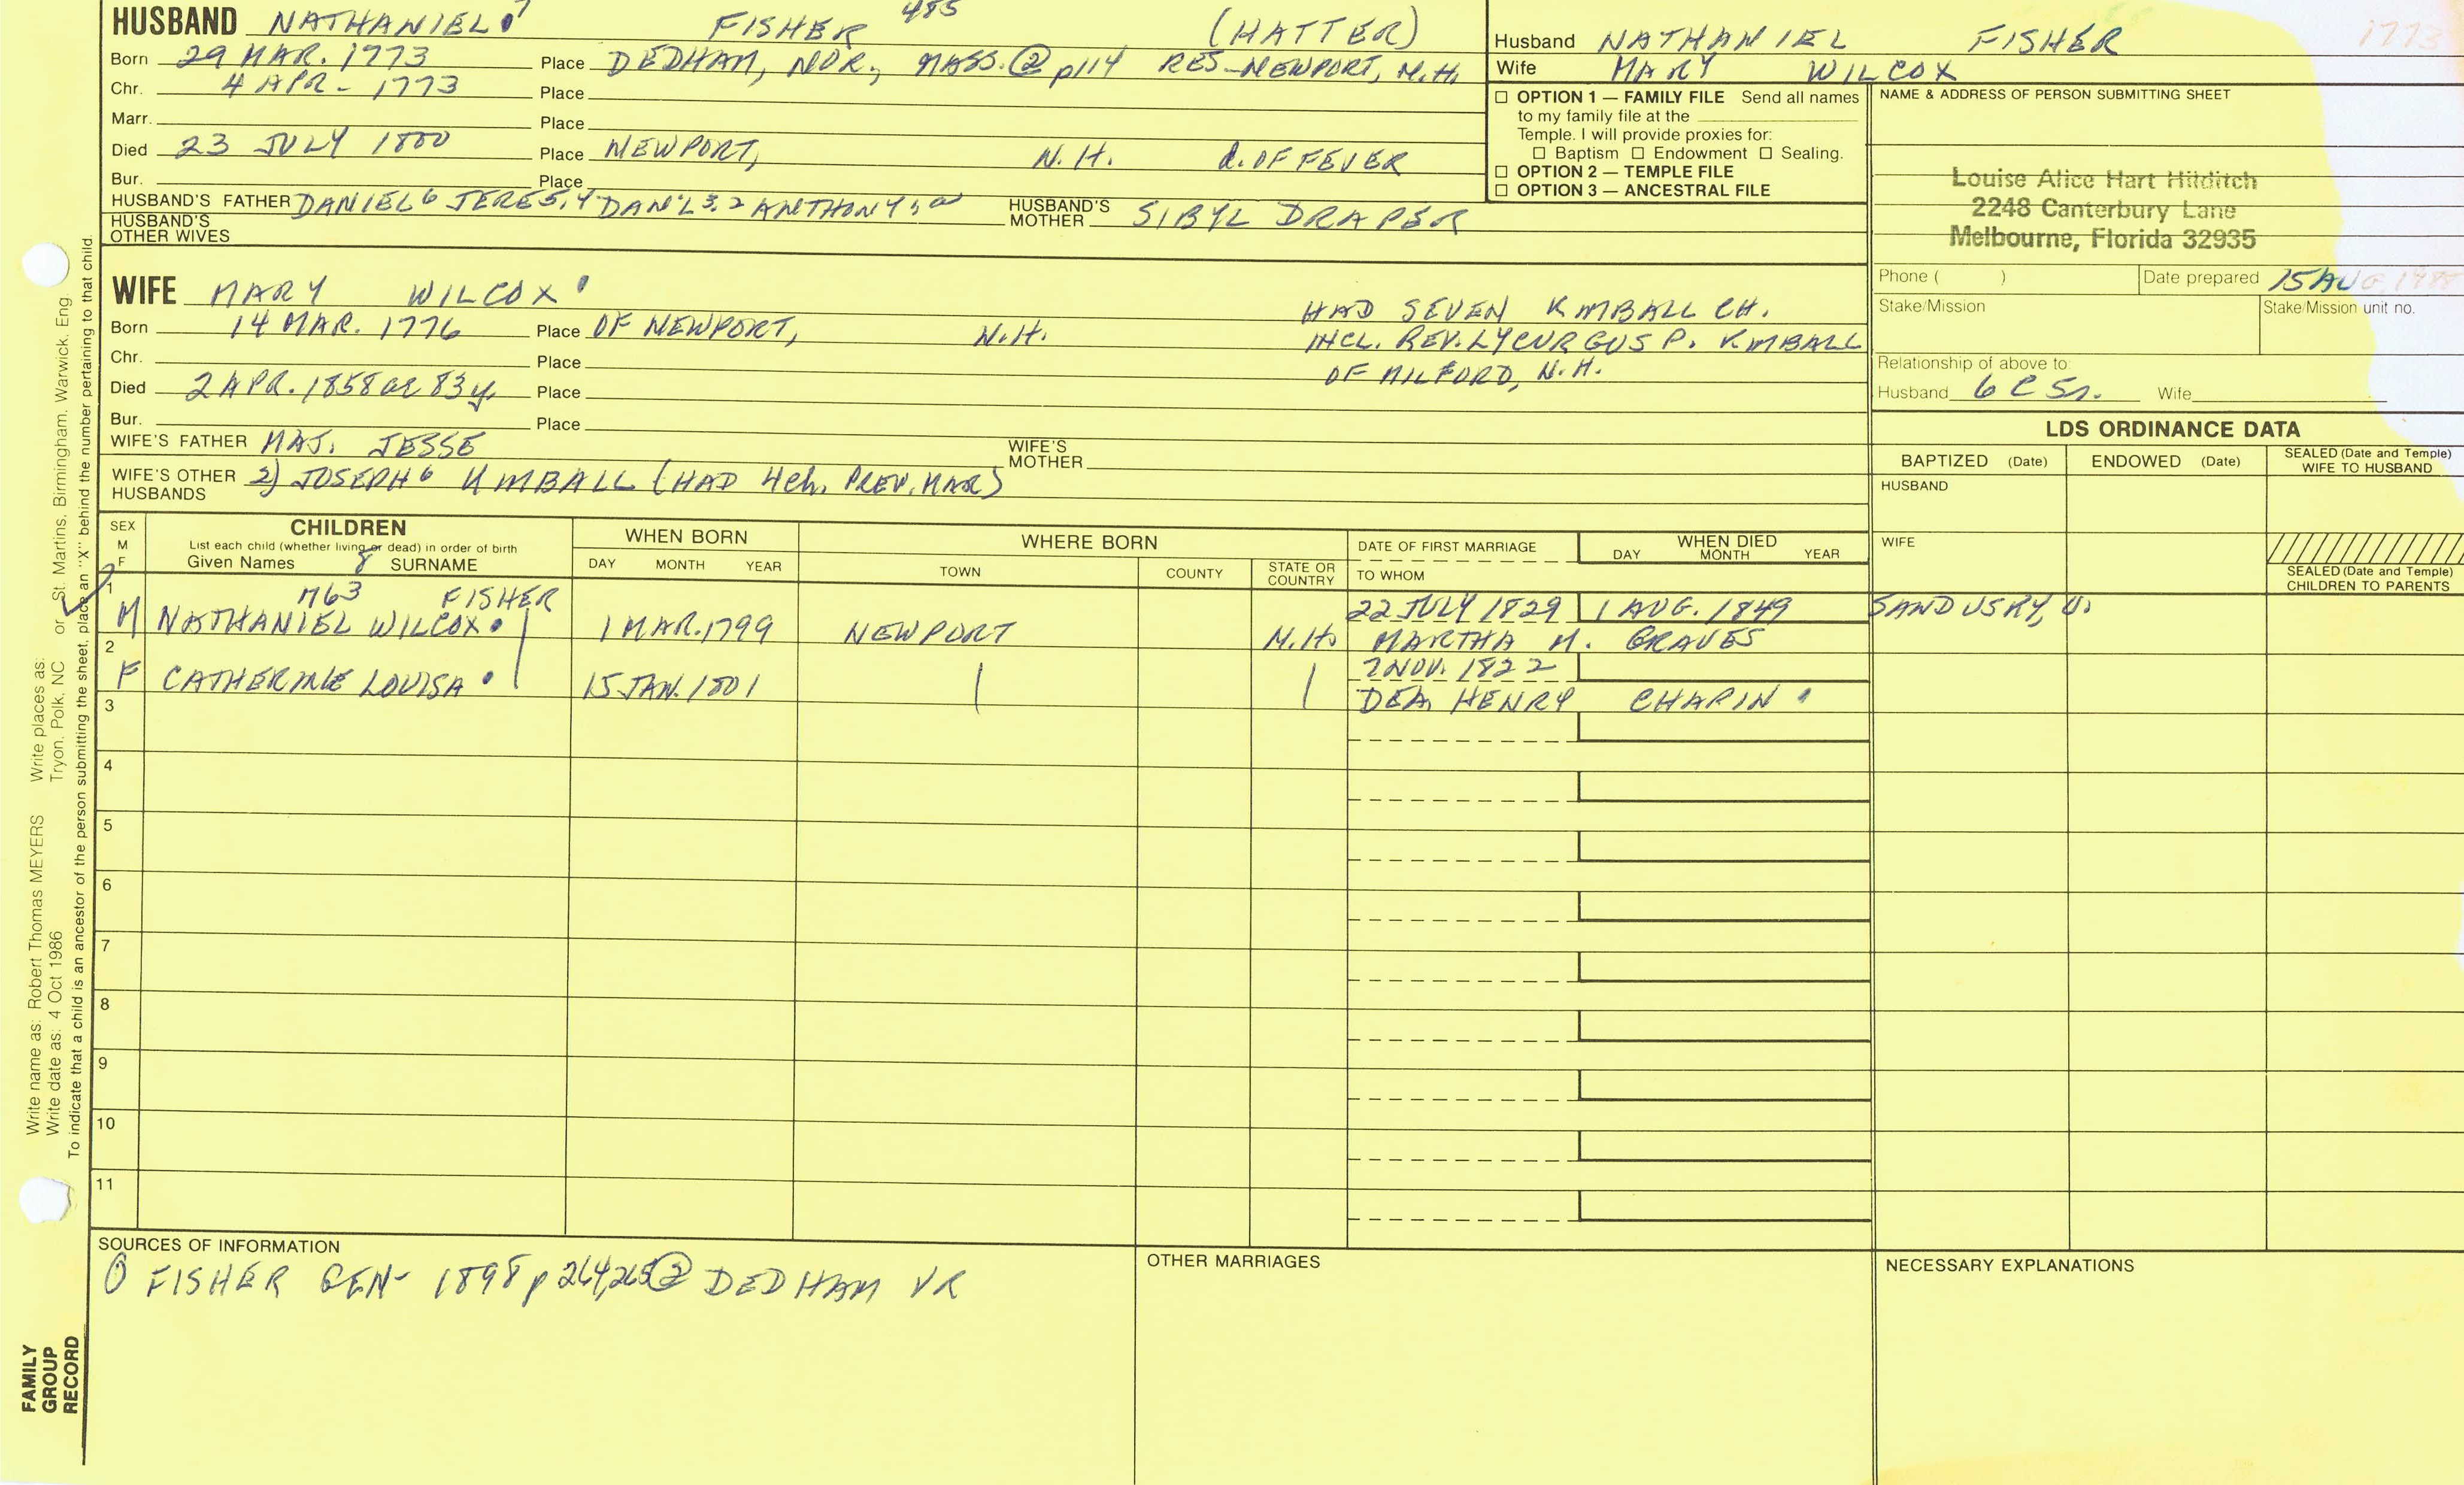 HUSBAND NATHANIEL 7 FISHER 485 (HATTER)
Born 29 MAR. 1773 Place DEDHAM, NOR., MASS. ② p114 RES-NEWPORT, N.H.
Chr. 4 APR - 1773 Place
Marr. Place
Died 23 JULY 1800 Place NEWPORT, N.H. d. OF FEVER
Bur. Place
HUSBAND'S FATHER DANIEL 6 JERE 5,4 DAN'L 3,2 ANTHONY 1,a HUSBAND'S MOTHER SIBYL DRAPER
HUSBAND'S OTHER WIVES
Husband NATHANIEL FISHER 1773
Wife MARY WILCOX
☐ OPTION 1 — FAMILY FILE Send all names
to my family file at the
Temple. I will provide proxies for:
☐ Baptism ☐ Endowment ☐ Sealing.
☐ OPTION 2 — TEMPLE FILE
☐ OPTION 3 — ANCESTRAL FILE
NAME & ADDRESS OF PERSON SUBMITTING SHEET
Louise Alice Hart Hilditch
2248 Canterbury Lane
Melbourne, Florida 32935
Phone ( ) Date prepared 15 AUG
Stake/Mission Stake/Mission unit no.
Relationship of above to:
Husband 6 C 5r. Wife
WIFE MARY WILCOX
Born 14 MAR. 1776 Place OF NEWPORT, N.H.
HAD SEVEN KIMBALL CH.
INCL. REV. LYCURGUS P. KIMBALL
OF MILFORD, N.H.
Chr. Place
Died 2 APR. 1858 ae 83 y. Place
Bur. Place
WIFE'S FATHER MAJ. JESSE WIFE'S MOTHER
WIFE'S OTHER HUSBANDS 2) JOSEPH 6 KIMBALL (HAD 4 ch. PREV. MAR)
LDS ORDINANCE DATA
BAPTIZED (Date) ENDOWED (Date) SEALED (Date and Temple) WIFE TO HUSBAND
HUSBAND
WIFE
SEALED (Date and Temple) CHILDREN TO PARENTS
SEX M F
CHILDREN
List each child (whether living or dead) in order of birth
Given Names 8 SURNAME
WHEN BORN
DAY MONTH YEAR
WHERE BORN
TOWN COUNTY STATE OR COUNTRY
DATE OF FIRST MARRIAGE
TO WHOM
WHEN DIED
DAY MONTH YEAR
1 M 1163 FISHER
NATHANIEL WILCOX 1 MAR. 1799 NEWPORT N.H. 22 JULY 1829 1 AUG. 1849 SANDUSKY, O.
MARTHA M. GRAVES
2 F CATHERINE LOUISA 15 JAN. 1801 7 NOV. 1822
DEA. HENRY CHAPIN
3
4
5
6
7
8
9
10
11
SOURCES OF INFORMATION
① FISHER GEN- 1898 p 264,265 ② DEDHAM VR
OTHER MARRIAGES
NECESSARY EXPLANATIONS
Write name as: Robert Thomas MEYERS Write places as: or St. Martins, Birmingham, Warwick, Eng.
Write date as: 4 Oct 1986 Tryon, Polk, NC
To indicate that a child is an ancestor of the person submitting the sheet, place an "X" behind the number pertaining to that child.
FAMILY
GROUP
RECORD